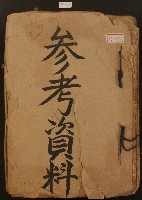 参考資料